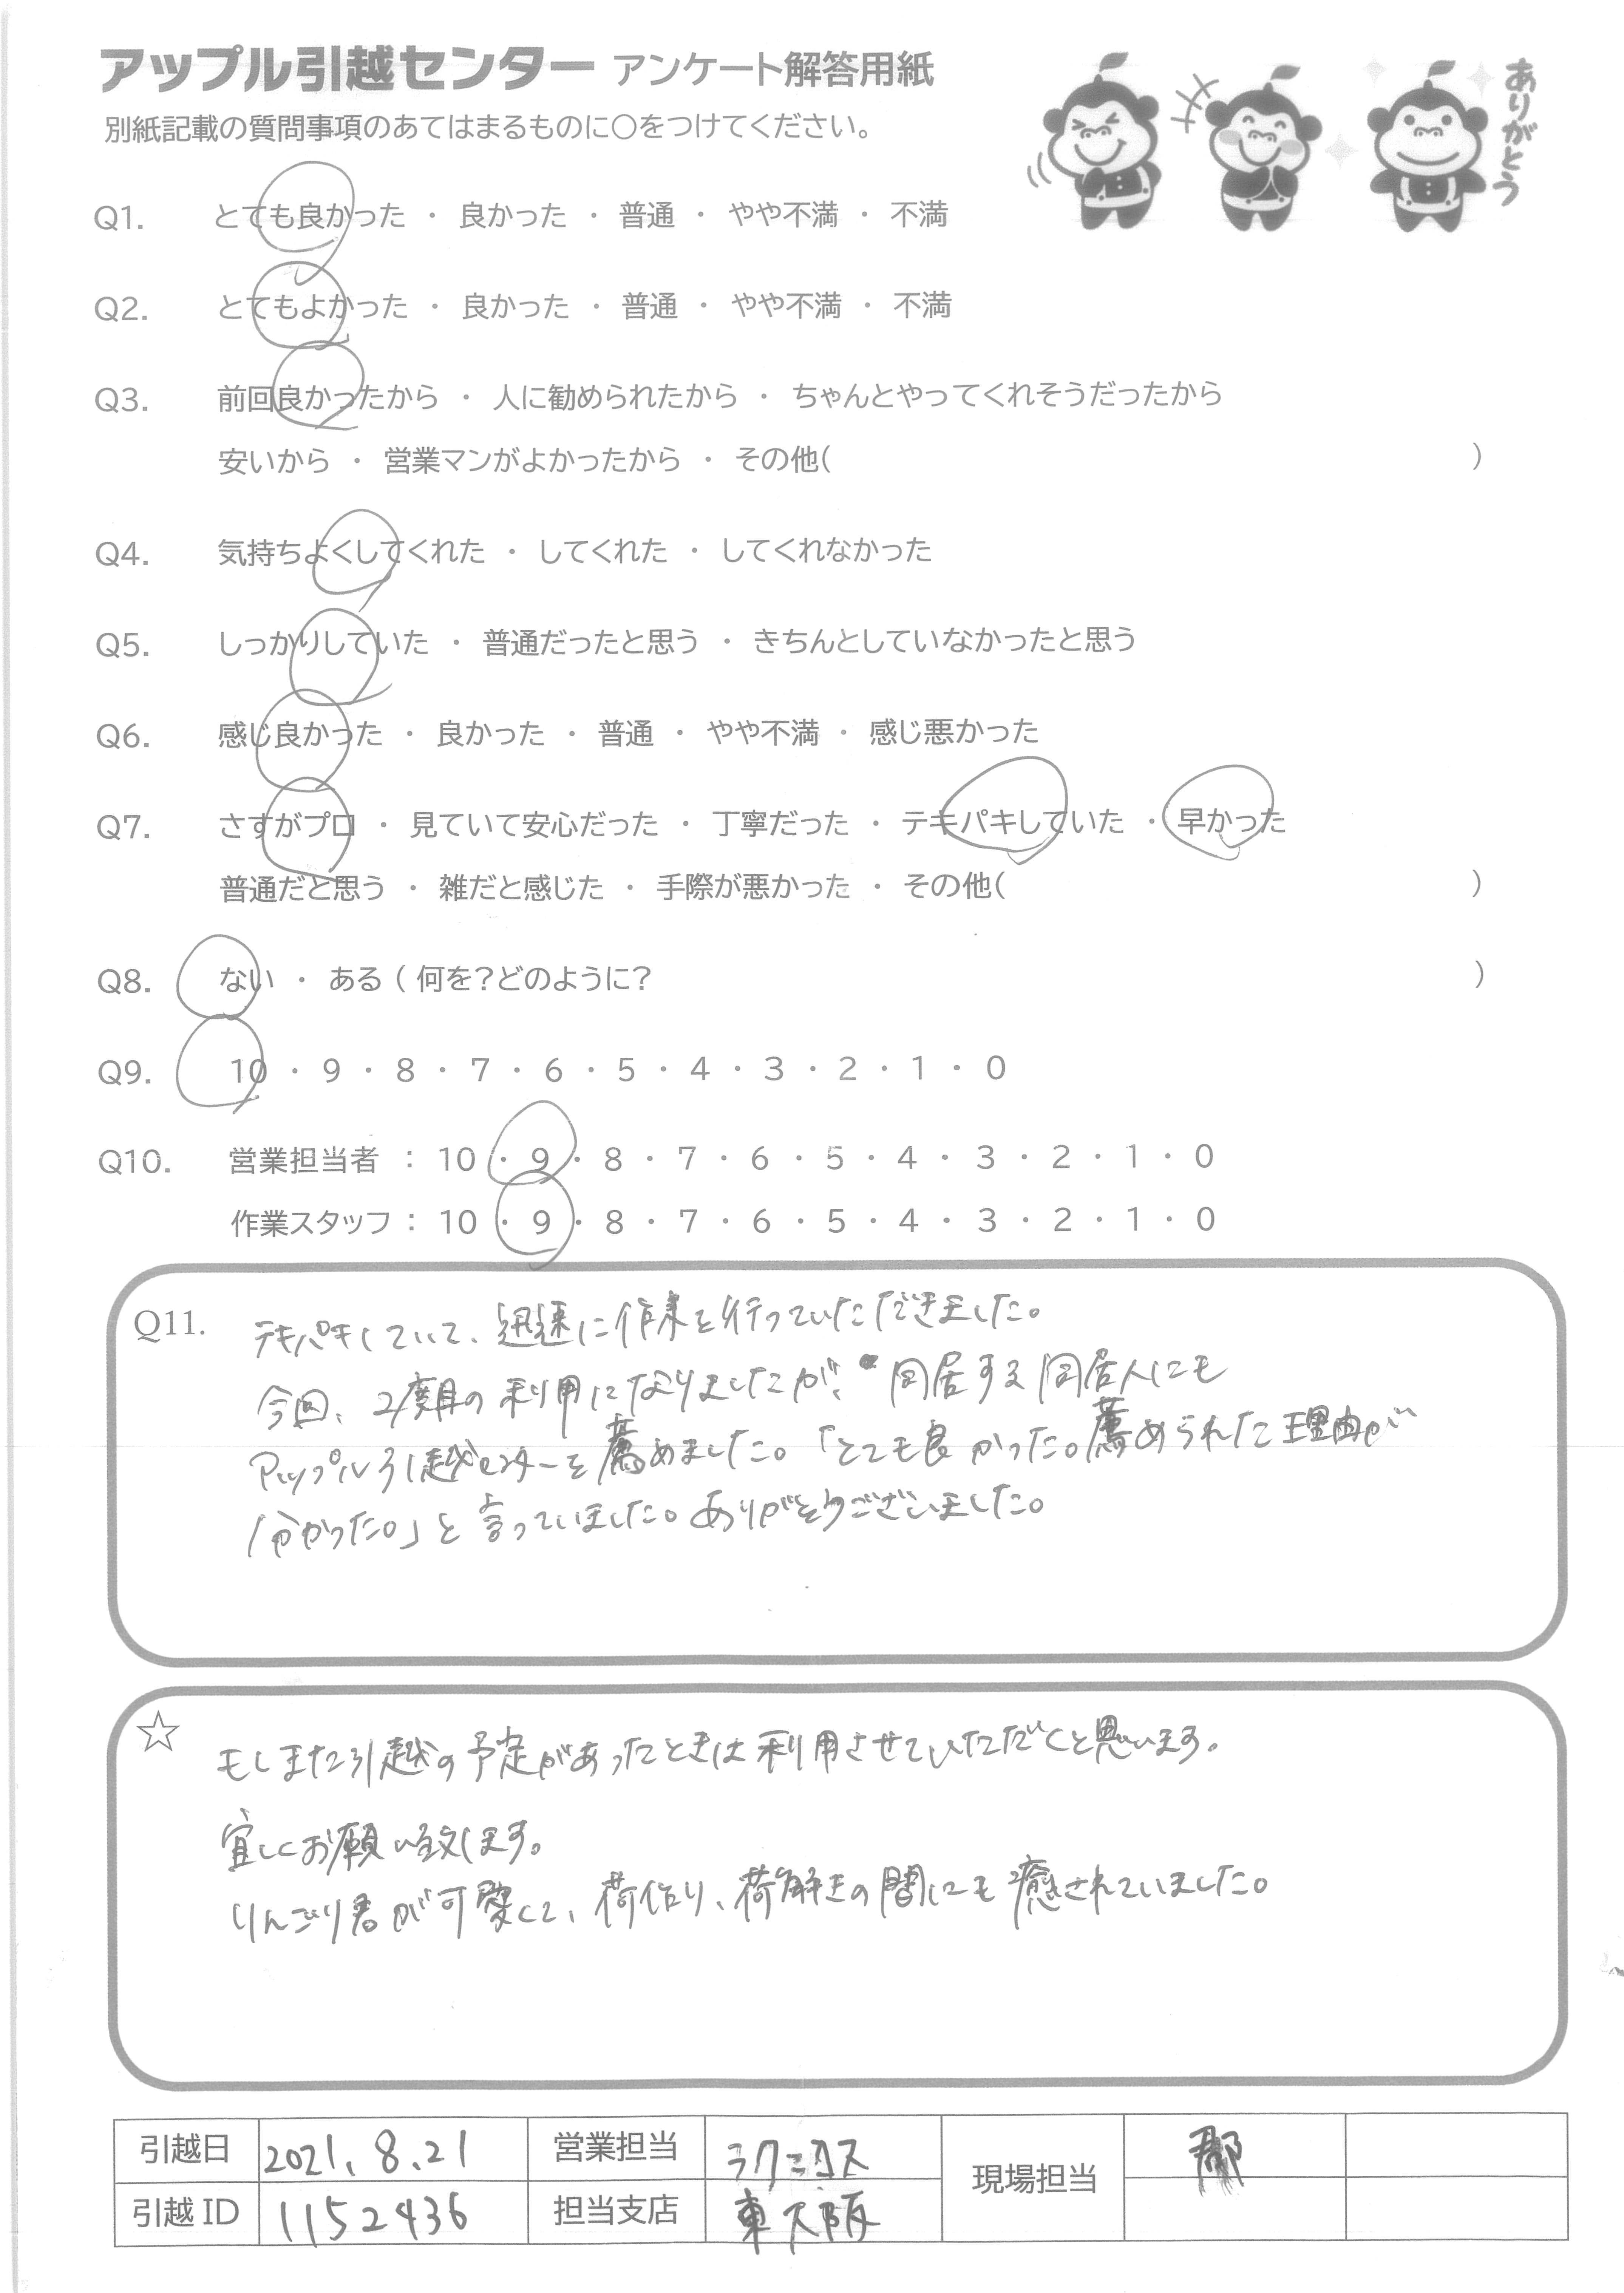 アップル引越センター アンケート解答用紙
ありがとう
別紙記載の質問事項のあてはまるものに○をつけてください。
Q1. とても良かった ・ 良かった ・ 普通 ・ やや不満 ・ 不満
Q2. とてもよかった ・ 良かった ・ 普通 ・ やや不満 ・ 不満
Q3. 前回良かったから ・ 人に勧められたから ・ ちゃんとやってくれそうだったから
安いから ・ 営業マンがよかったから ・ その他( )
Q4. 気持ちよくしてくれた ・ してくれた ・ してくれなかった
Q5. しっかりしていた ・ 普通だったと思う ・ きちんとしていなかったと思う
Q6. 感じ良かった ・ 良かった ・ 普通 ・ やや不満 ・ 感じ悪かった
Q7. さすがプロ ・ 見ていて安心だった ・ 丁寧だった ・ テキパキしていた ・ 早かった
普通だと思う ・ 雑だと感じた ・ 手際が悪かった ・ その他( )
Q8. ない ・ ある ( 何を?どのように? )
Q9. 10 ・ 9 ・ 8 ・ 7 ・ 6 ・ 5 ・ 4 ・ 3 ・ 2 ・ 1 ・ 0
Q10. 営業担当者 : 10 ・ 9 ・ 8 ・ 7 ・ 6 ・ 5 ・ 4 ・ 3 ・ 2 ・ 1 ・ 0
作業スタッフ : 10 ・ 9 ・ 8 ・ 7 ・ 6 ・ 5 ・ 4 ・ 3 ・ 2 ・ 1 ・ 0
Q11. テキパキしていて、迅速に作業を行っていただきました。
今回、2度目の利用になりましたが、同居する同居人にも
アップル引越センターを薦めました。「とても良かった。薦められた理由が
分かった。」と言っていました。ありがとうございました。
☆ もしまた引越の予定があったときは利用させていただくと思います。
宜しくお願い致します。
りんごり君が可愛くて、荷作り、荷解きの間にも癒されていました。
引越日 2021.8.21 営業担当 ラクニコス 現場担当
引越 ID 1152436 担当支店 東大阪